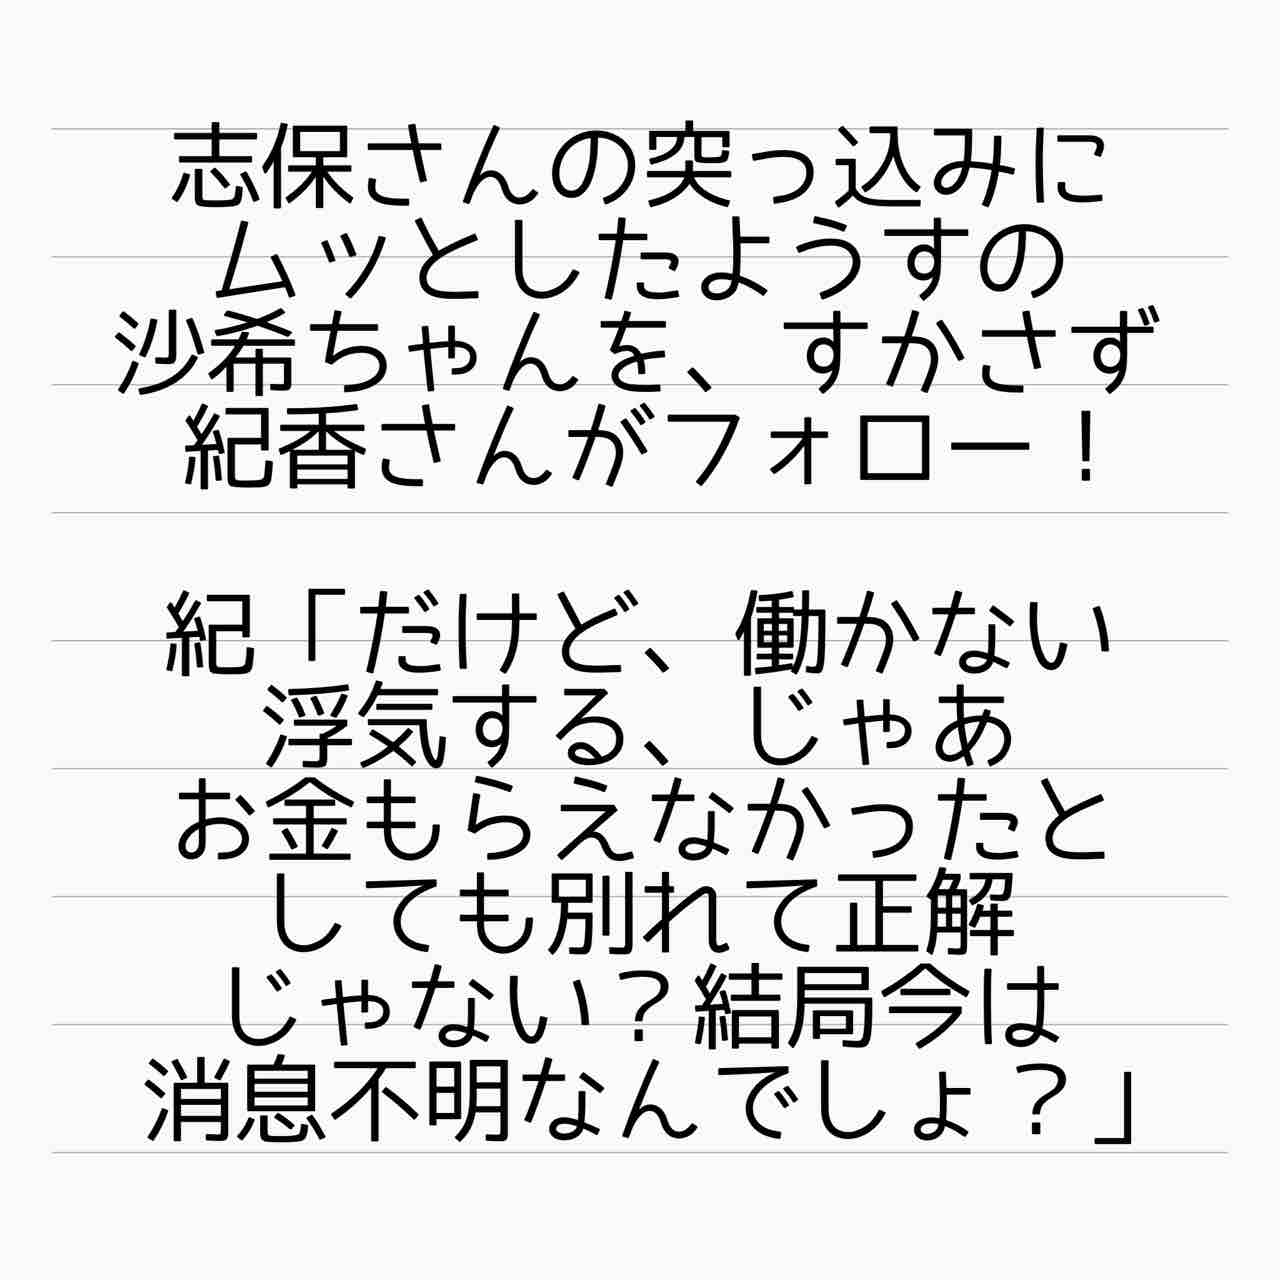 志保さんの突っ込みに
ムッとしたようすの
沙希ちゃんを、すかさず
紀香さんがフォロー！
紀「だけど、働かない
浮気する、じゃあ
お金もらえなかったと
しても別れて正解
じゃない？結局今は
消息不明なんでしょ？」